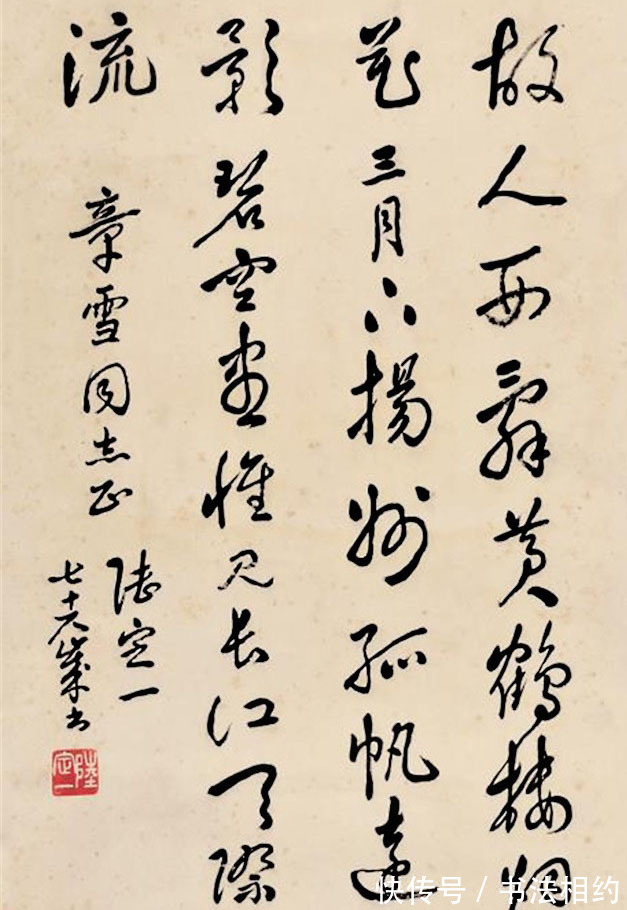 故人西辭黄鶴樓烟
花三月下揚州孤帆遠
影碧空盡惟見長江天際
流
章雪同志正
陸定一
七十六歲书
陸定一
快传号 / 书法相约